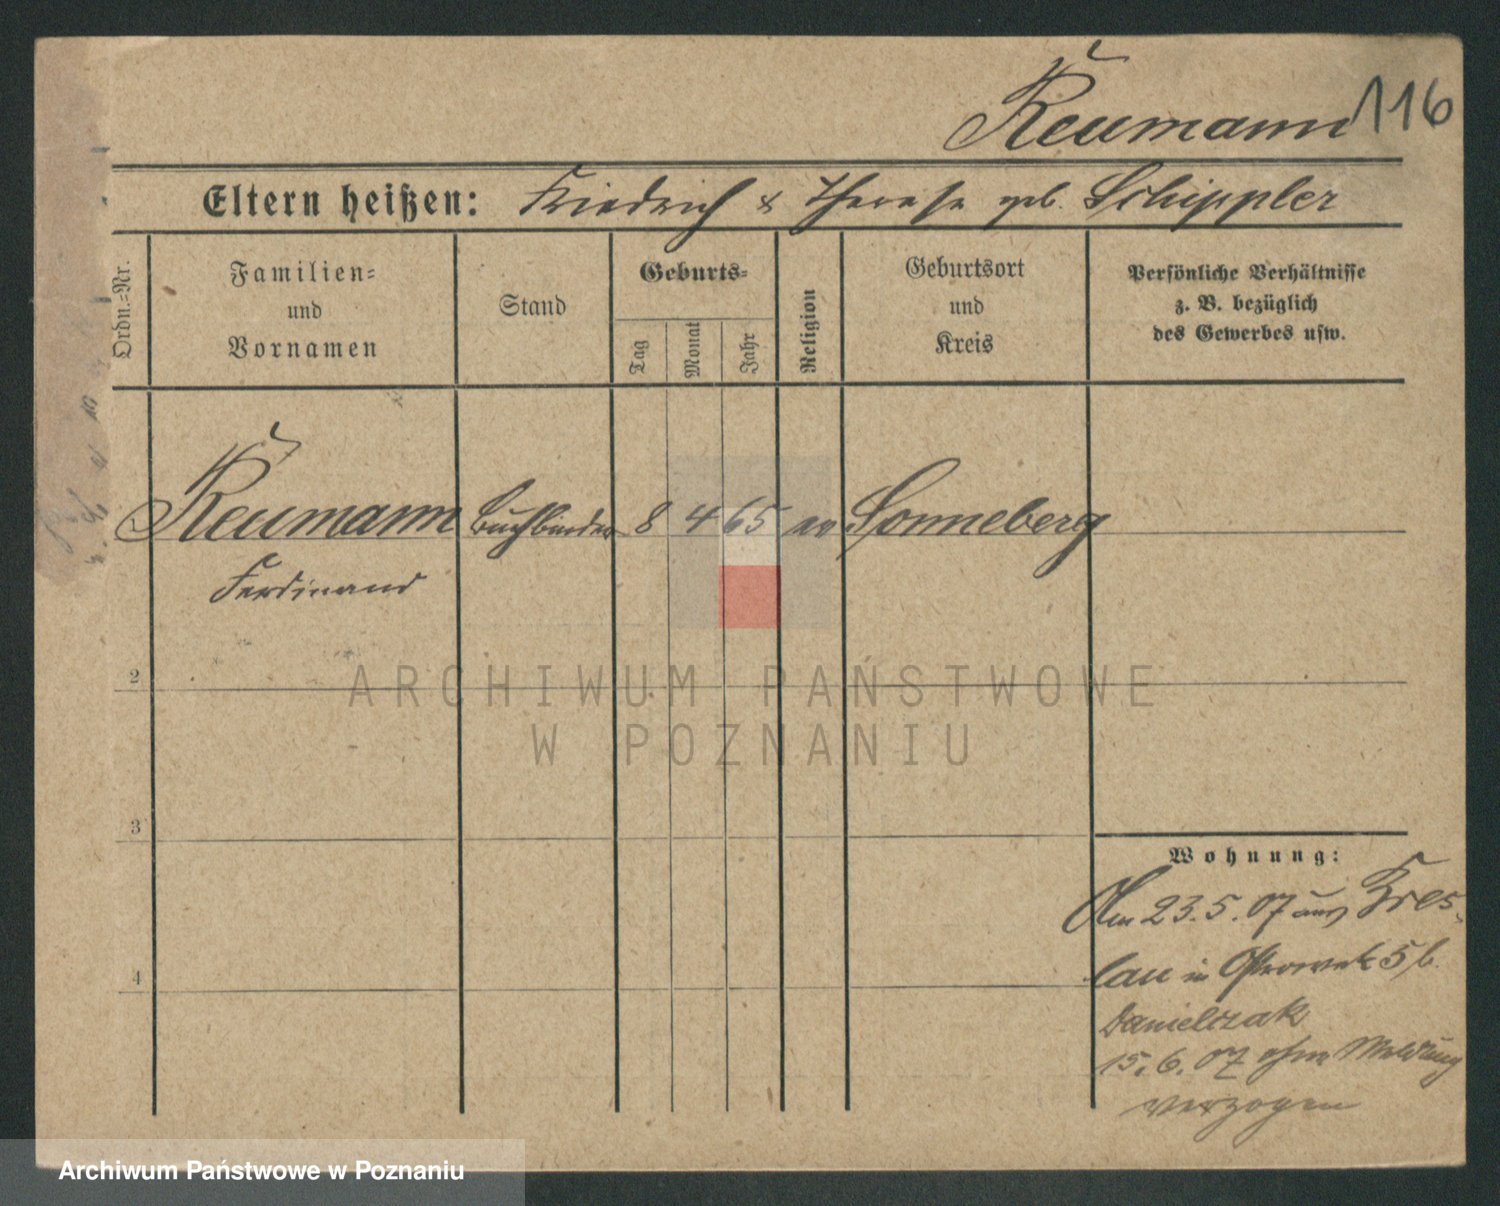 Reumann 116
Eltern heißen: Friedrich & Therese geb. Schippler
Ordn.=Nr.
Familien=
und
Vornamen
Stand
Geburts=
Tag
Monat
Jahr
Religion
Geburtsort
und
Kreis
Persönliche Verhältnisse
z. B. bezüglich
des Gewerbes usw.
Reumann Buchbinder 8 4 65 ev Sonneberg
Ferdinand
2
3
4
Wohnung:
Am 23.5.07 aus Bres-
lau in Ostrowek 5 b.
Danielczak
15.6.07 ohne Meldung
verzogen
ARCHIWUM PAŃSTWOWE
W POZNANIU
Archiwum Państwowe w Poznaniu